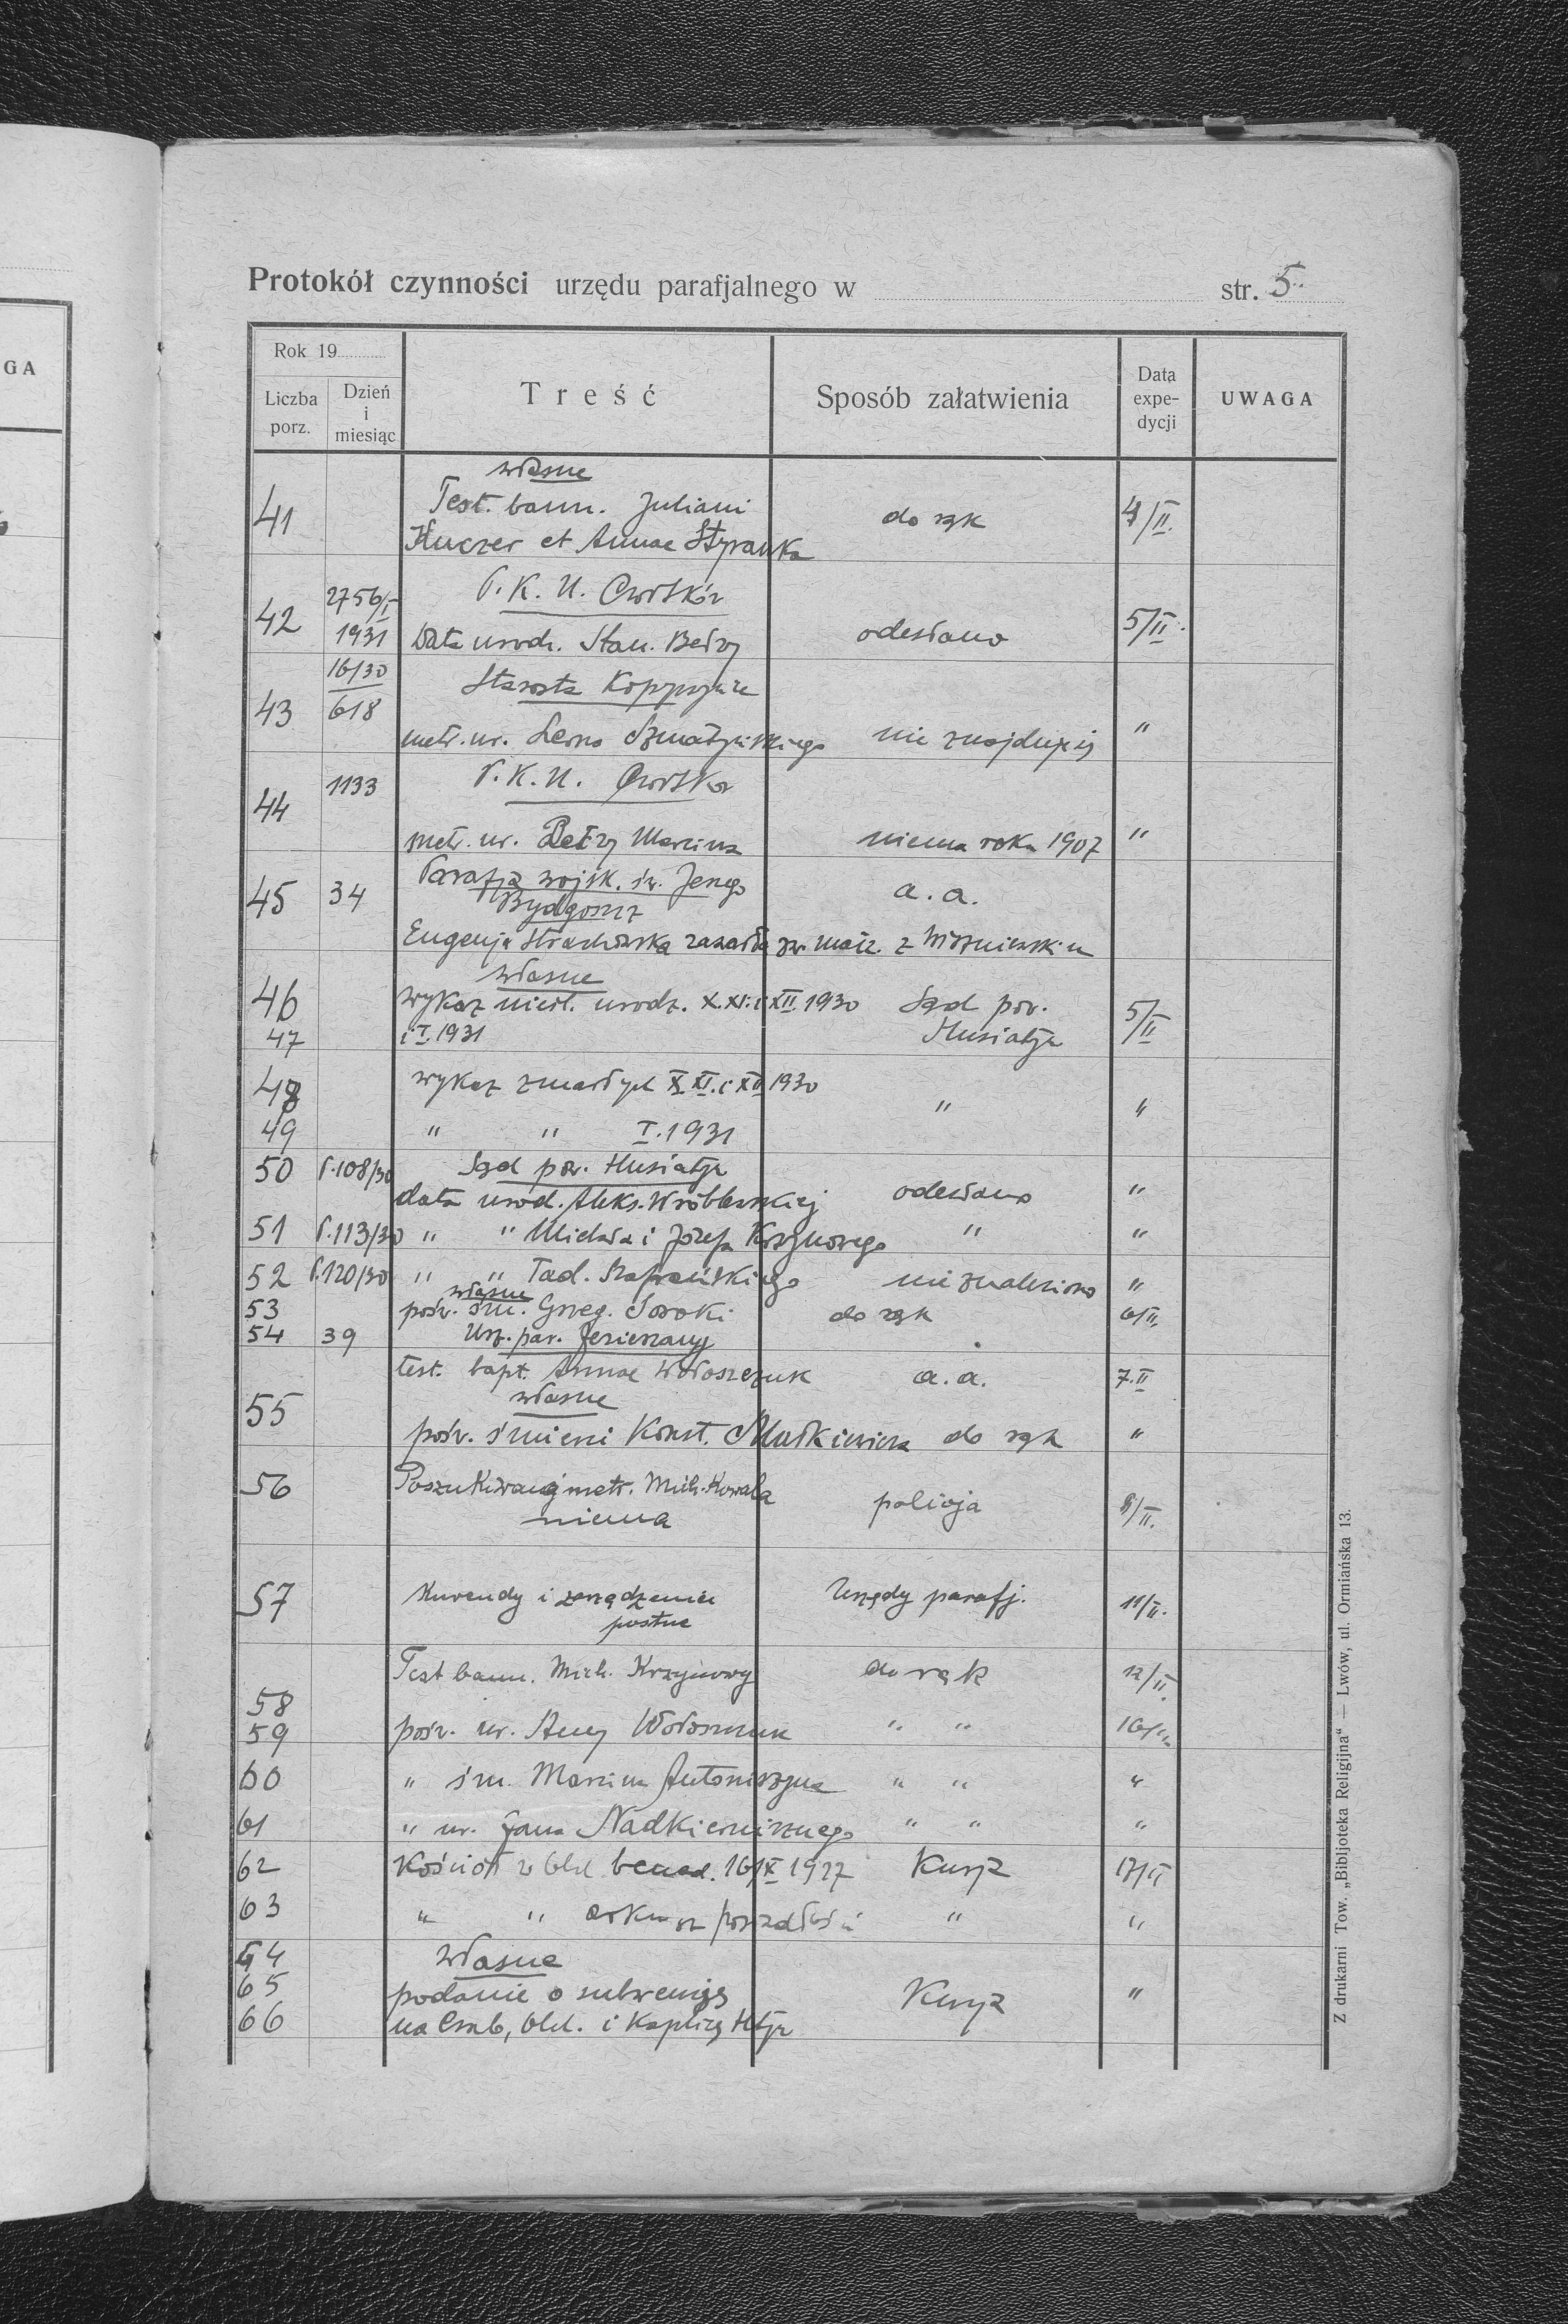 GA
Protokół czynności urzędu parafjalnego w str. 5
Rok 19
Liczba porz.
Dzień i miesiąc
Treść
Sposób załatwienia
Data expedycji
UWAGA
własne
41 Test. bann. Juliani do rąk 4/II.
Kuczer et Annae Styranka
42 2756/I 1931 P. K. U. Czortków
Data urodz. Stan. Bełzy odesłano 5/II.
43 16/30 618 Starosta Kopyczyńce
metr. ur. Leona nie znajduje się "
44 1133 P. K. U. Czortków
metr. ur. Bełzy Marcina niema roku 1907 "
45 34 Parafja wojsk. św. Jerzego a. a.
Bydgoszcz
Eugenja Strachowska zawarła zw. małż. z Wiśniewskim
własne
46 wykaz nieśl. urodz. X. XI. i XII. 1930 Sąd pow. 5/II
47 i I. 1931 Husiatyn
48 wykaz zmarłych X. XI. i XII 1930 " "
49 " " I. 1931
50 P.108/30 Sąd pow. Husiatyn
data urod. Aleks. Wróblewskiej odesłano "
51 P.113/30 " " Michała i Józefa " "
52 P.120/30 " " Tad. Szafrańskiego nie znaleziono "
własne
53 pośw. śm. Grzeg. Soroki do rąk 6/II.
54 39 Urz. par. Jezierzany
test. bapt. Annae Wołoszczuk a. a. 7.II
własne
55 pośw. śmierci Konst. do rąk "
56 Poszukiwanej metr. Mich. Kowala policja 8/II.
niema
57 Kurendy i zarządzenia Urzędy parafj. 11/II.
postne
58 Test bann. Mich. Krzyżowy do rąk 12/II.
59 pośw. ur. Anny Wołoszczuk " " 16/II
60 " śm. Marcina Antoniszyna " " "
61 " ur. Jana Nadkiernicznego " " "
62 Kościół w bened. 16/X 1927 Kurja 17/II
63 " " " "
64 własne
65 podanie o subwencję Kurja "
66 na i Kaplicę
Z drukarni Tow. „Bibljoteka Religijna" — Lwów, ul. Ormiańska 13.